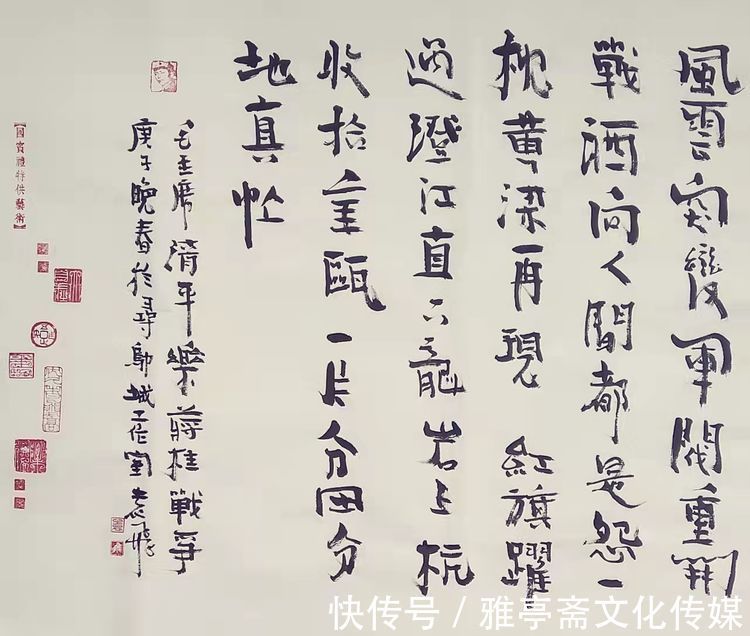 風雲突變軍閥重開
戰洒向人間都是怨一
枕黄梁再現 紅旗躍
過澄江直下龍岩上杭
收拾金甌一片分田分
地真忙
毛主席清平樂蔣桂戰爭
庚子晚春於尋城工作室袁飛
【國賓禮特供藝術】
快传号 / 雅亭斋文化传媒